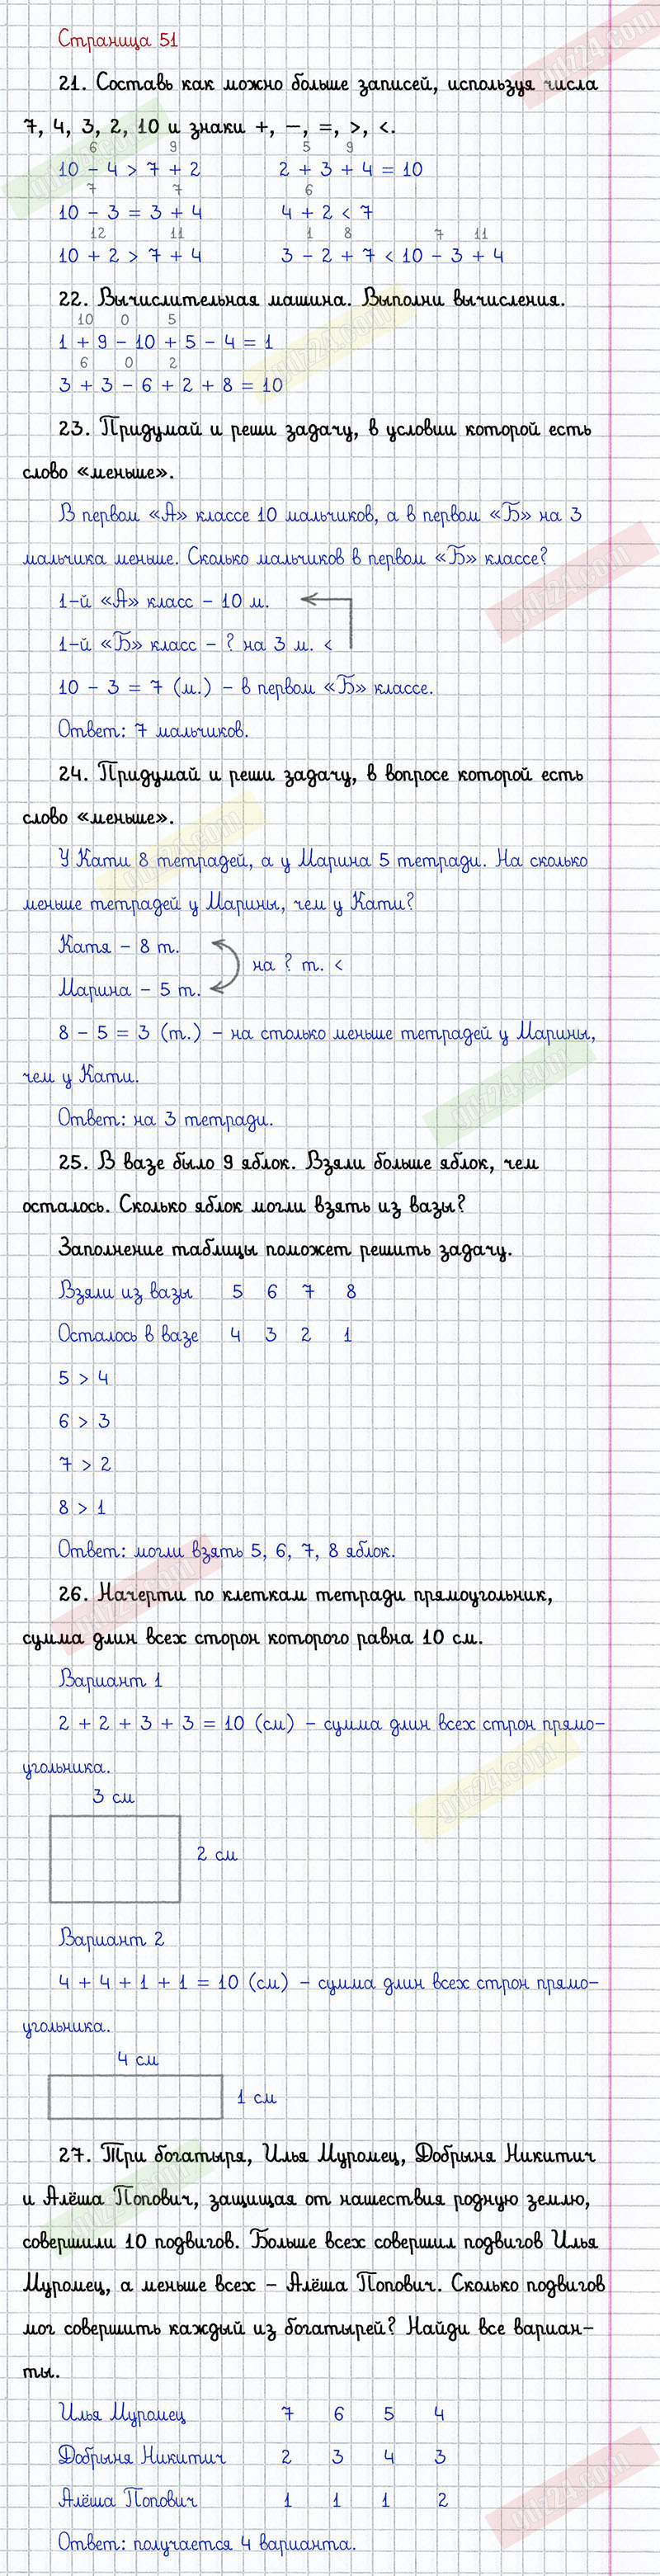 Страница 51
21. Составь как можно больше записей, используя числа
7, 4, 3, 2, 10 и знаки +, −, =, >, <.
6 9 5 9
10 − 4 > 7 + 2 2 + 3 + 4 = 10
7 7 6
10 − 3 = 3 + 4 4 + 2 < 7
12 11 1 8 7 11
10 + 2 > 7 + 4 3 − 2 + 7 < 10 − 3 + 4
22. Вычислительная машина. Выполни вычисления.
10 0 5
1 + 9 − 10 + 5 − 4 = 1
6 0 2
3 + 3 − 6 + 2 + 8 = 10
23. Придумай и реши задачу, в условии которой есть
слово «меньше».
В первом «А» классе 10 мальчиков, а в первом «Б» на 3
мальчика меньше. Сколько мальчиков в первом «Б» классе?
1-й «А» класс − 10 м.
1-й «Б» класс − ? на 3 м. <
10 − 3 = 7 (м.) − в первом «Б» классе.
Ответ: 7 мальчиков.
24. Придумай и реши задачу, в вопросе которой есть
слово «меньше».
У Кати 8 тетрадей, а у Марина 5 тетради. На сколько
меньше тетрадей у Марины, чем у Кати?
Катя − 8 т.
на ? т. <
Марина − 5 т.
8 − 5 = 3 (т.) − на столько меньше тетрадей у Марины,
чем у Кати.
Ответ: на 3 тетради.
25. В вазе было 9 яблок. Взяли больше яблок, чем
осталось. Сколько яблок могли взять из вазы?
Заполнение таблицы поможет решить задачу.
Взяли из вазы 5 6 7 8
Осталось в вазе 4 3 2 1
5 > 4
6 > 3
7 > 2
8 > 1
Ответ: могли взять 5, 6, 7, 8 яблок.
26. Начерти по клеткам тетради прямоугольник,
сумма длин всех сторон которого равна 10 см.
Вариант 1
2 + 2 + 3 + 3 = 10 (см) − сумма длин всех строн прямо-
угольника.
3 см
2 см
Вариант 2
4 + 4 + 1 + 1 = 10 (см) − сумма длин всех строн прямо-
угольника.
4 см
1 см
27. Три богатыря, Илья Муромец, Добрыня Никитич
и Алёша Попович, защищая от нашествия родную землю,
совершили 10 подвигов. Больше всех совершил подвигов Илья
Муромец, а меньше всех − Алёша Попович. Сколько подвигов
мог совершить каждый из богатырей? Найди все вариан-
ты.
Илья Муромец 7 6 5 4
Добрыня Никитич 2 3 4 3
Алёша Попович 1 1 1 2
Ответ: получается 4 варианта.